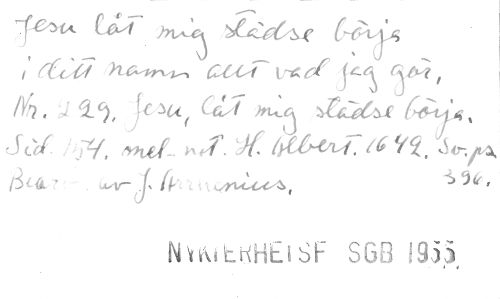 Jesu låt mig städse börja
i ditt namn allt vad jag gör,
Nr. 229. Jesu, låt mig städse börja.
Sid. 154. mel. not. H. Albert. 1642. Sv. ps
396.
Bearb. av J. Arrhenius.
NYKTERHETSF SGB 1955